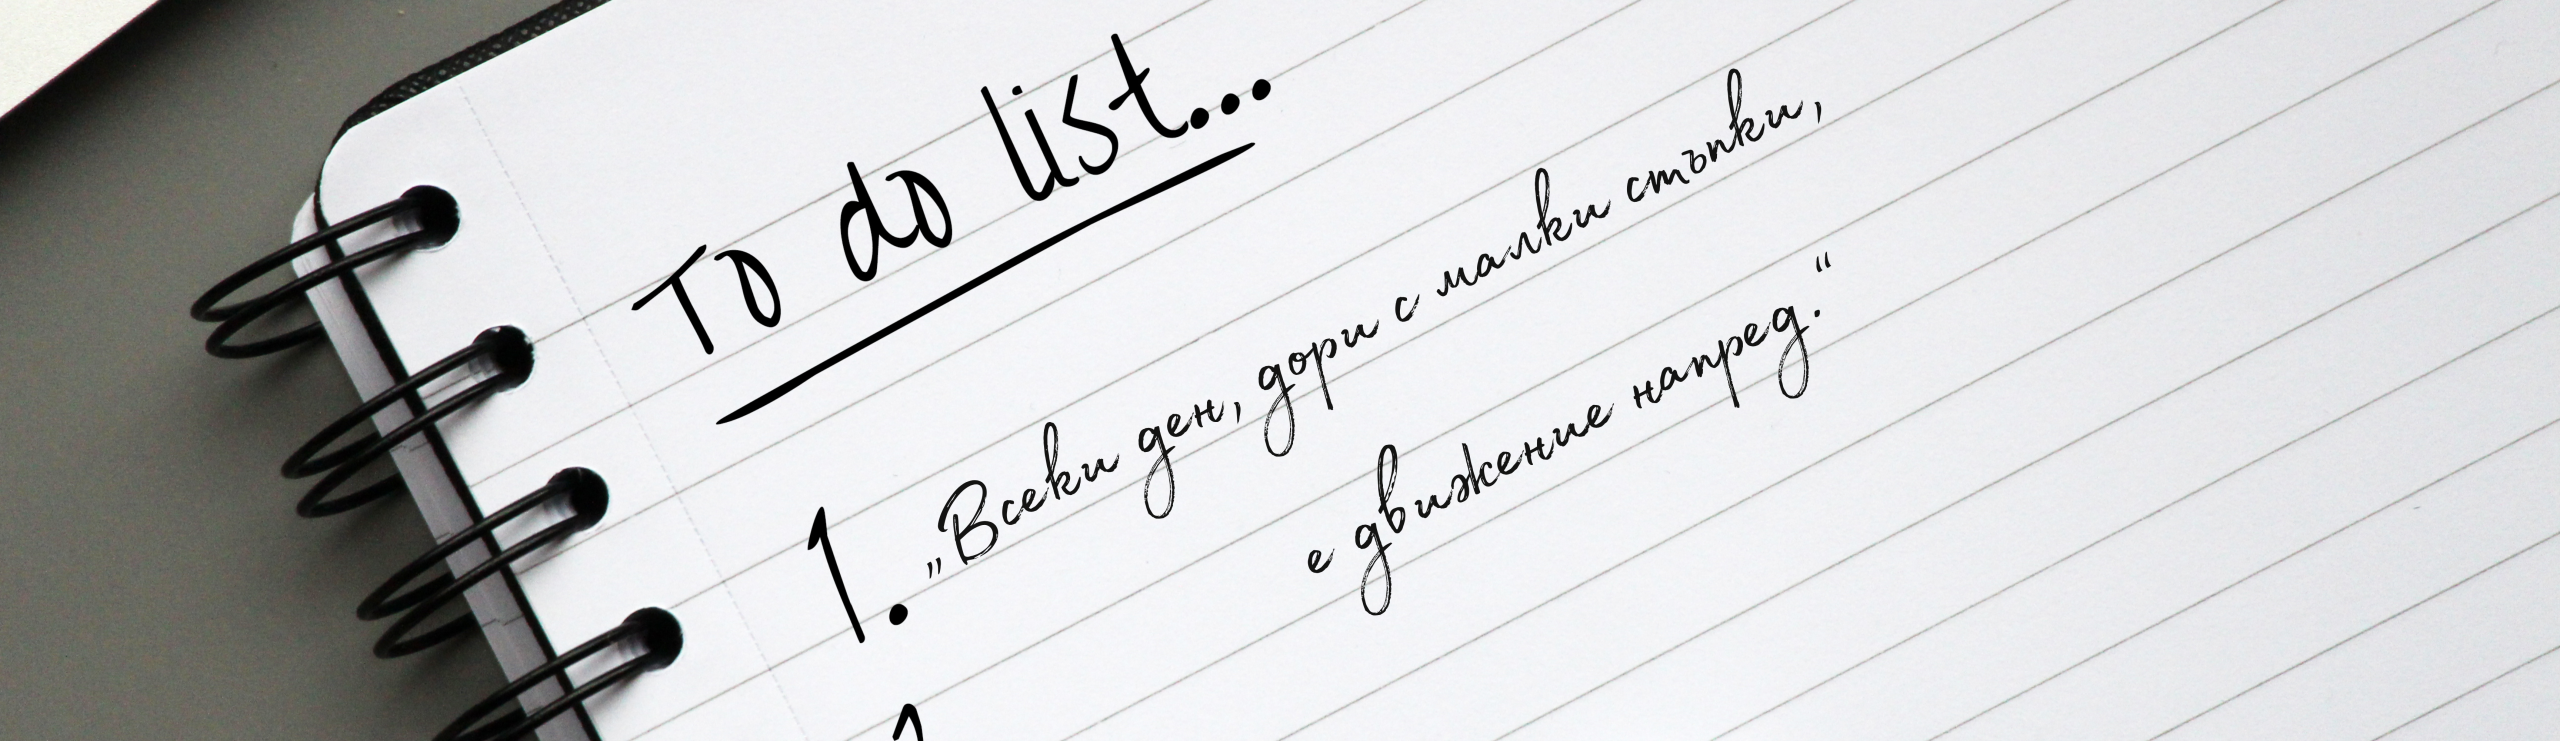 To do list...
1. „Всеки ден, дори с малки стъпки,
е движение напред.“